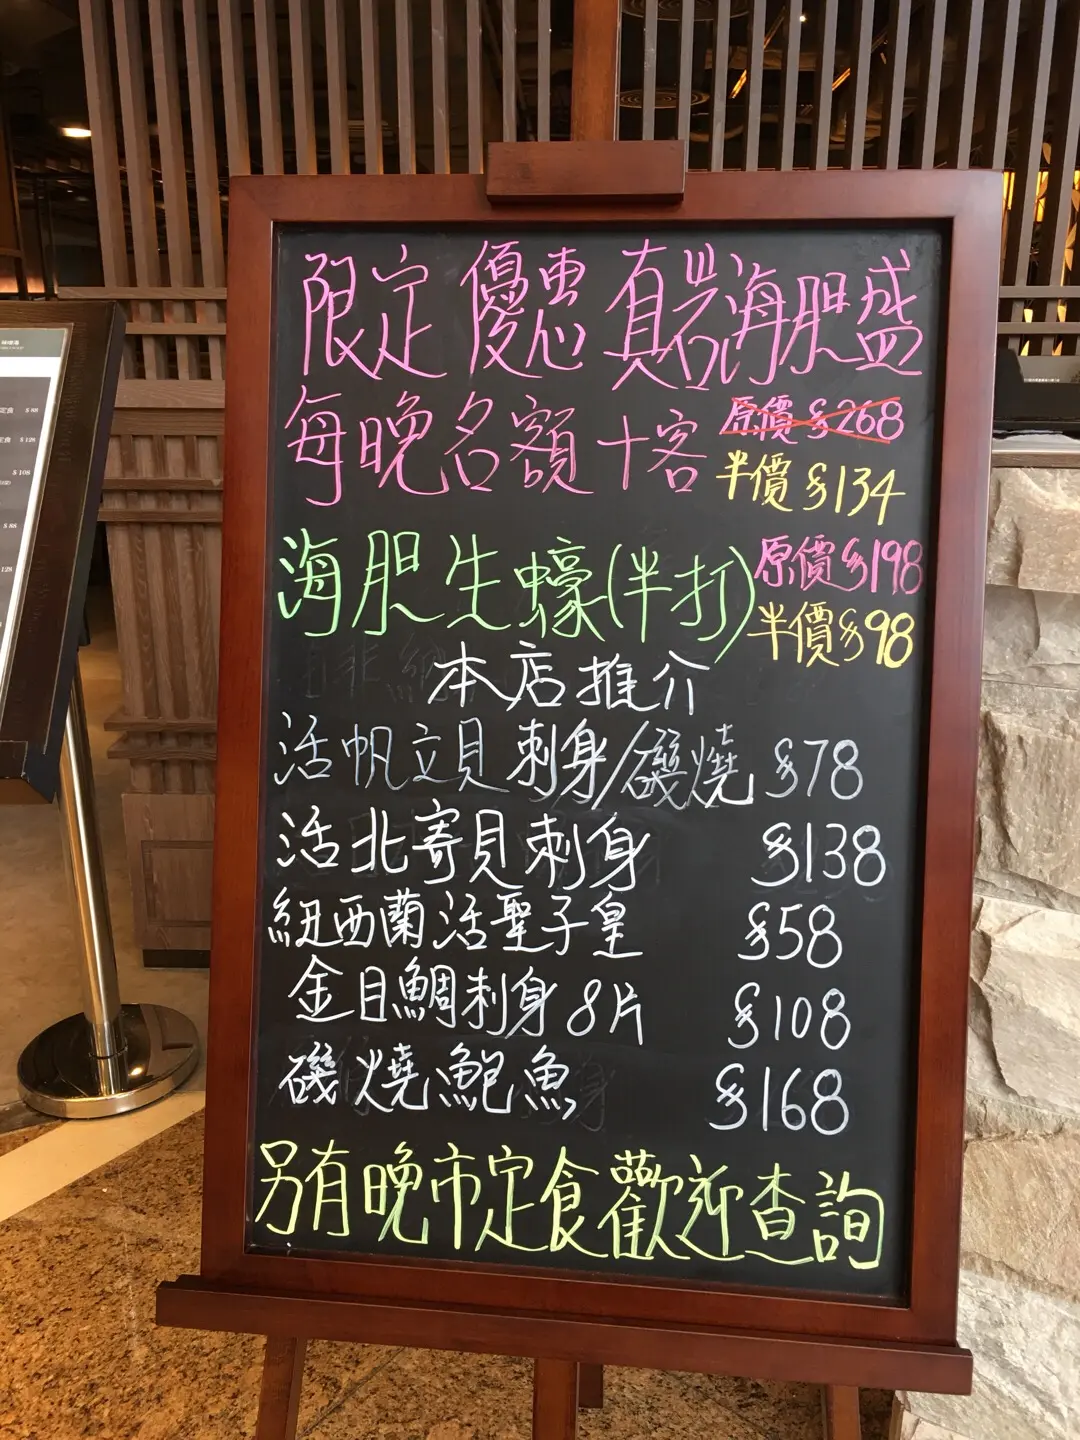 限定優惠 真岩海胆盛
每晚名額十客 原價$268
半價$134
海胆生蠔(半打) 原價$198
半價$98
本店推介
活帆立貝刺身/磯燒 $78
活北寄貝刺身 $138
紐西蘭活聖子皇 $58
金目鯛刺身8片 $108
磯燒鮑魚 $168
另有晚市定食歡迎查詢
定食 $88
定食 $128
$108
$88
128